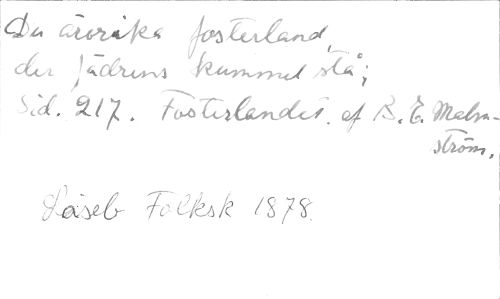 Du ärorika fosterland,
der fädrens kummel stå;
Sid. 217. Fosterlandet. af B. E. Malm-
ström.
Läseb Folksk 1878.